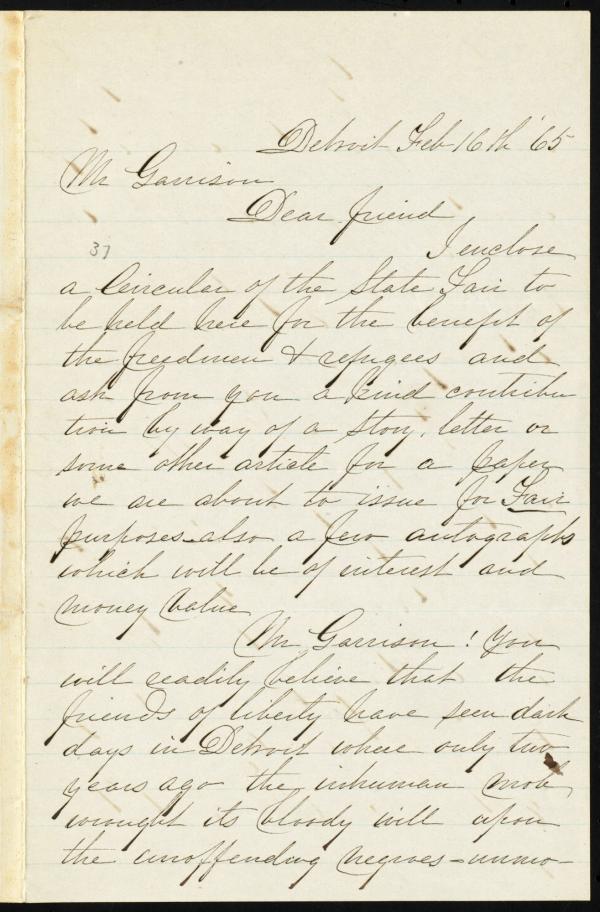 Detroit Feb 16th '65
Mr Garrison
Dear friend
37
I enclose
a Circular of the State Fair to
be held here for the benefit of
the freedmen & refugees and
ask from you a kind contribu
tion by way of a story, letter or
some other article for a paper
we are about to issue for Fair
purposes also a few autographs
which will be of interest and
money value
Mr Garrison! You
will readily believe that the
friends of liberty have seen dark
days in Detroit where only two
years ago the inhuman mob
wrought its bloody will upon
the unoffending negroes - unmo-